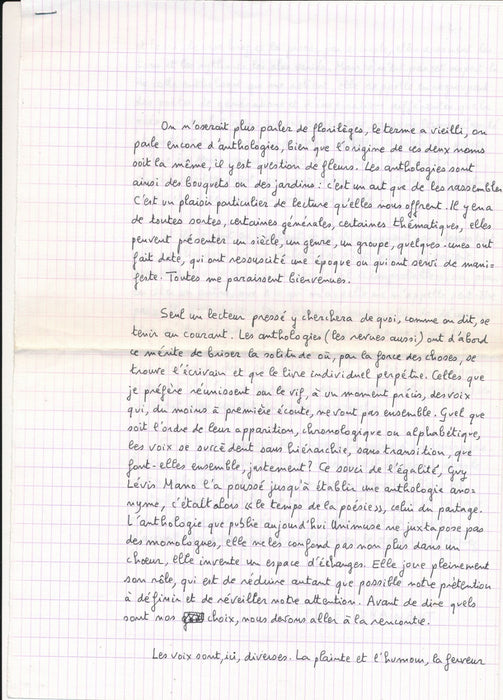 On n'oserait plus parler de florilèges, le terme a vieilli, on
parle encore d'anthologies, bien que l'origine de ces deux noms
soit la même, il y est question de fleurs. Les anthologies sont
ainsi des bouquets ou des jardins : c'est un art que de les rassembler.
C'est un plaisir particulier de lecture qu'elles nous offrent. Il y en a
de toutes sortes, certaines générales, certaines thématiques, elles
peuvent présenter un siècle, un genre, un groupe, quelques-unes ont
fait date, qui ont ressuscité une époque ou qui ont servi de mani-
feste. Toutes me paraissent bienvenues.
Seul un lecteur pressé y cherchera de quoi, comme on dit, se
tenir au courant. Les anthologies (les revues aussi) ont d'abord
ce mérite de briser la solitude où, par la force des choses, se
trouve l'écrivain et que le livre individuel perpétue. Celles que
je préfère réunissent sur le vif, à un moment précis, des voix
qui, du moins à première écoute, ne vont pas ensemble. Quel que
soit l'ordre de leur apparition, chronologique ou alphabétique,
les voix se succèdent sans hiérarchie, sans transition, que
font-elles ensemble, justement ? Ce souci de l'égalité, Guy
Lévis Mano l'a poussé jusqu'à établir une anthologie ano-
nyme, c'était alors « le temps de la poésie », celui du partage.
L'anthologie que publie aujourd'hui Unimuse ne juxtapose pas
des monologues, elle ne les confond pas non plus dans un
chœur, elle invente un espace d'échanges. Elle joue pleinement
son rôle, qui est de réduire autant que possible notre prétention
à définir et de réveiller notre attention. Avant de dire quels
sont nos choix, nous devons aller à la rencontre.
Les voix sont, ici, diverses. La plainte et l'humour, la ferveur